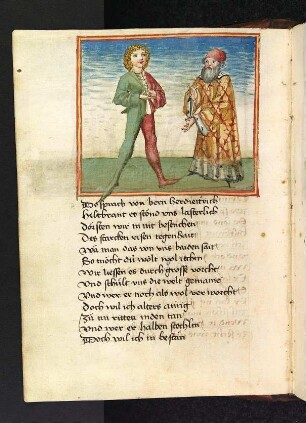 Do sprach von bern her dietrich
Hiltbrant es stond vns lasterlich
Dörsten wir in nit bestichen
Des starcken risen
Wa man das von vns baiden sait
So möcht dü wölt
Wir liessen es durch grosse vorcht
Vnd schült vns die welt gemaine
Vnd wer er noch als wol ver worcht
Doch wil ich alters ainig
Zü im ritten in den tan
Vnd wer er halben stechlin
Noch wil ich in bestan